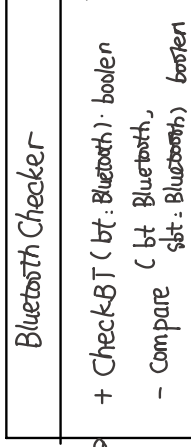 Bluetooth Checker
+ CheckBT ( bt : Bluetooth) : boolen
- Compare ( bt Bluetooth,
sbt : Bluetooth) boolen